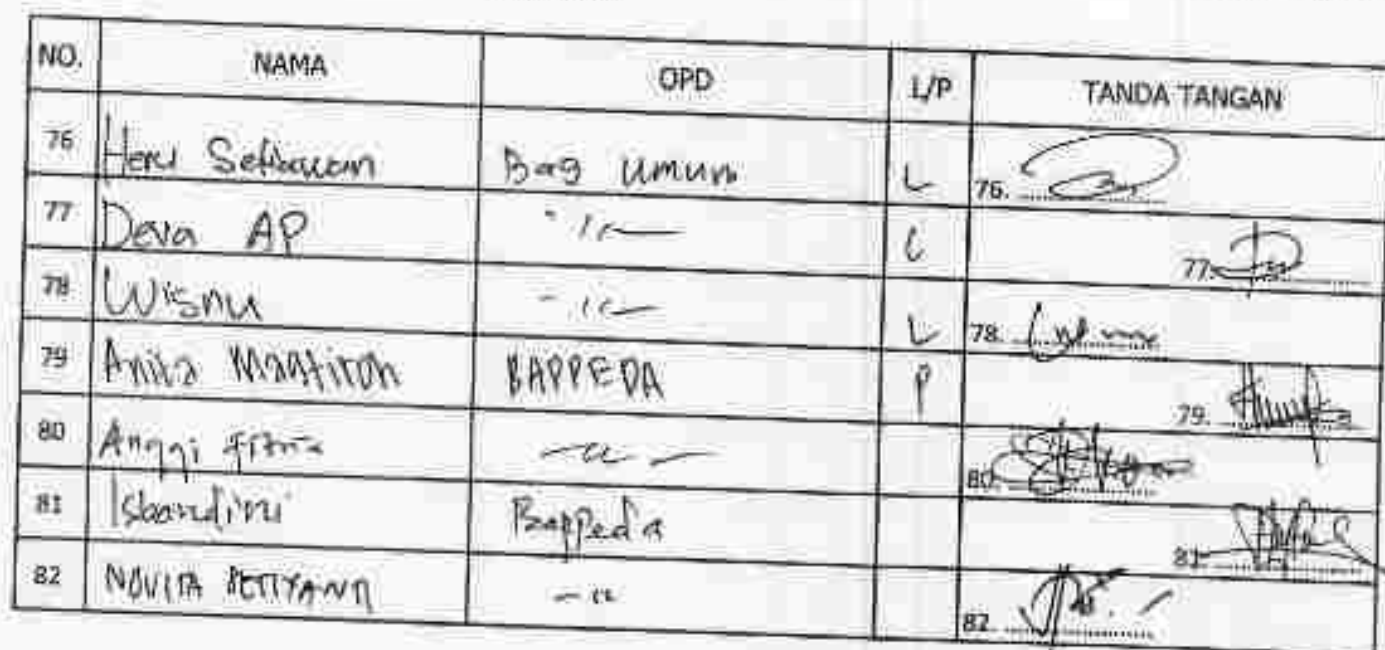 NO. NAMA OPD L/P TANDA TANGAN
76 Heru Setiawan Bag Umum L 76.
77 Deva AP -"- L 77.
78 Wisnu -"- L 78.
79 Anita BAPPEDA P 79.
80 Anggi Fitria -"- 80.
81 Isbandini Bappeda 81.
82 NOVITA SETIYANTI -"- 82.